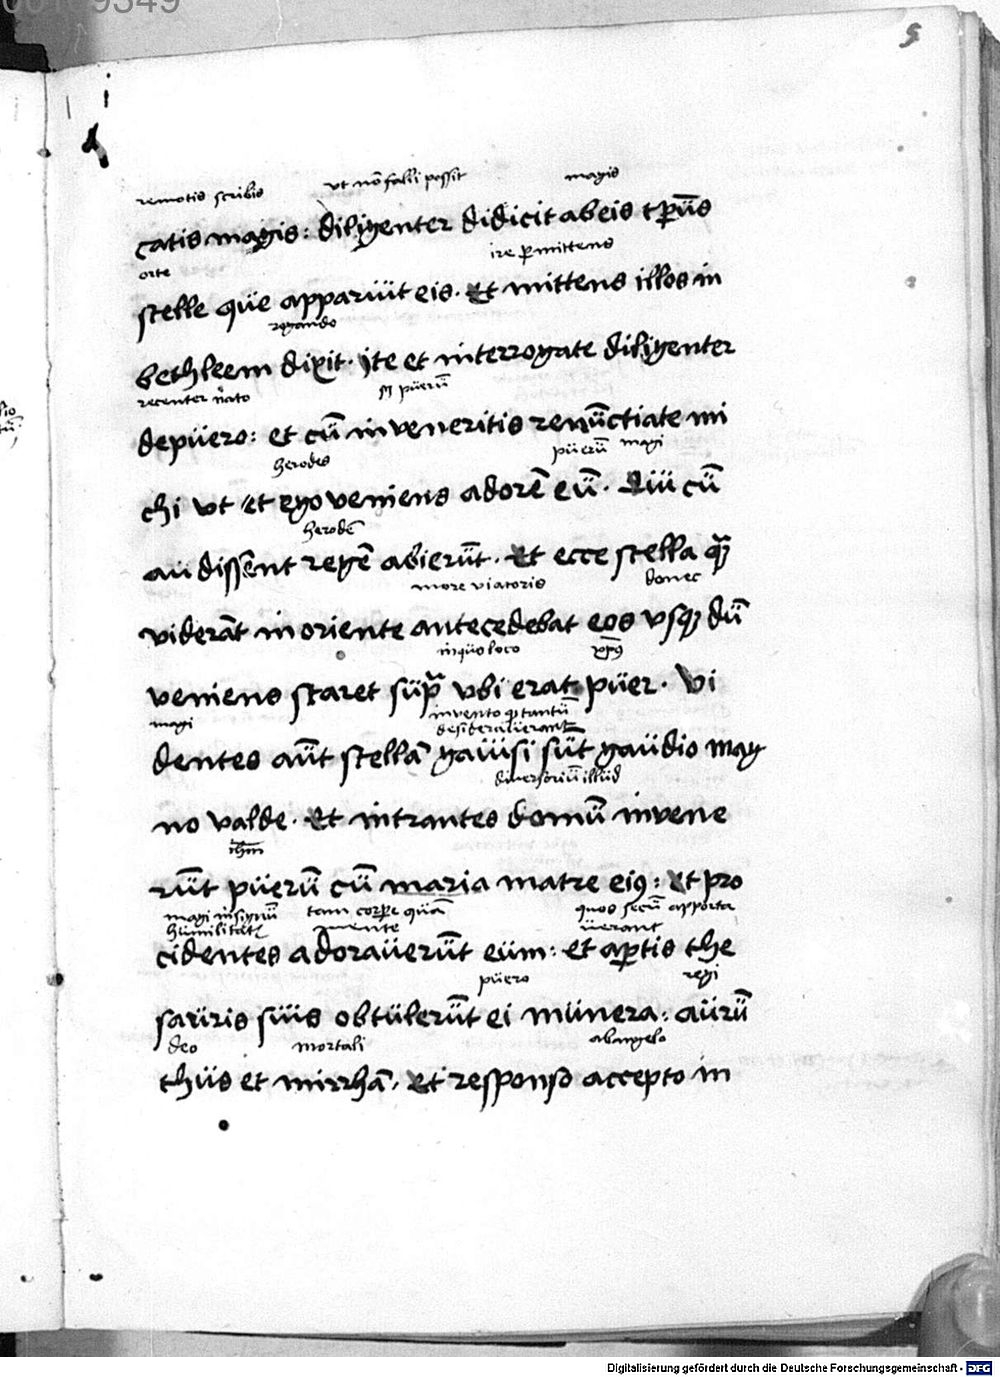 5
remotis scribis ut nō falli possit magis
catis magis: diligenter didicit ab eis tp̄us
orte ire ꝑmittens
stelle que apparuit eis. Et mittens illos in
rogando
bethleem dixit. ite et interrogate diligenter
recenter nato puerū
de puero: et cū inveneritis renūctiate mi
herodes puerū magi
chi ut et ego veniens adorē eū. Qui cū
herodē
audissent regē abierūt. Et ecce stella quā
more viatoris donec
viderāt in oriente antecedebat eos usqꝫ dū
in quo loco xp̄s
veniens staret supra ubi erat puer. Vi
magi invento qd tantū
desideraverant
dentes aūt stellā gavisi sūt gaudio mag
diversoriū illud
no valde. Et intrantes domū invene
ihm
rūt puerū cū maria matre eiꝰ: Et pro
magi in signū tam corꝑe quā quos secū apporta
humilitatis mente verant
cidentes adoraverūt eum: et aꝑtis the
puero regi
sauris suis obtulerūt ei munera: aurū
deo mortali ab angelo
thus et mirrhā. Et responso accepto in
Digitalisierung gefördert durch die Deutsche Forschungsgemeinschaft - DFG